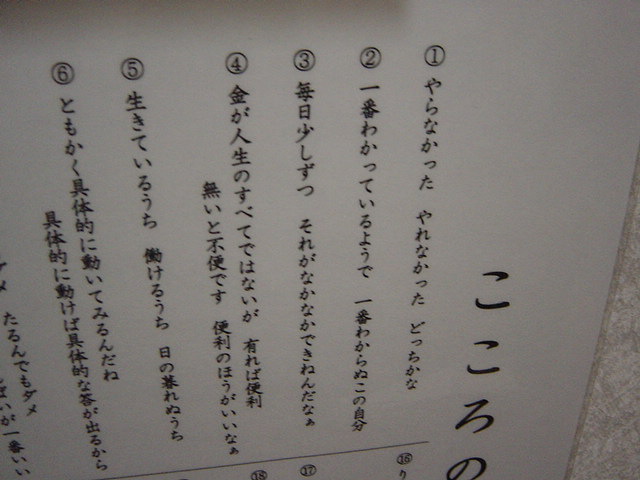 こころの
① やらなかった やれなかった どっちかな
② 一番わかっているようで 一番わからぬこの自分
③ 毎日少しずつ それがなかなかできねんだなぁ
④ 金が人生のすべてではないが 有れば便利
無いと不便です 便利のほうがいいなぁ
⑤ 生きているうち 働けるうち 日の暮れぬうち
⑥ ともかく具体的に動いてみるんだね
具体的に動けば具体的な答が出るから
たるんでもダメ
が一番いい
⑯
⑰
⑱